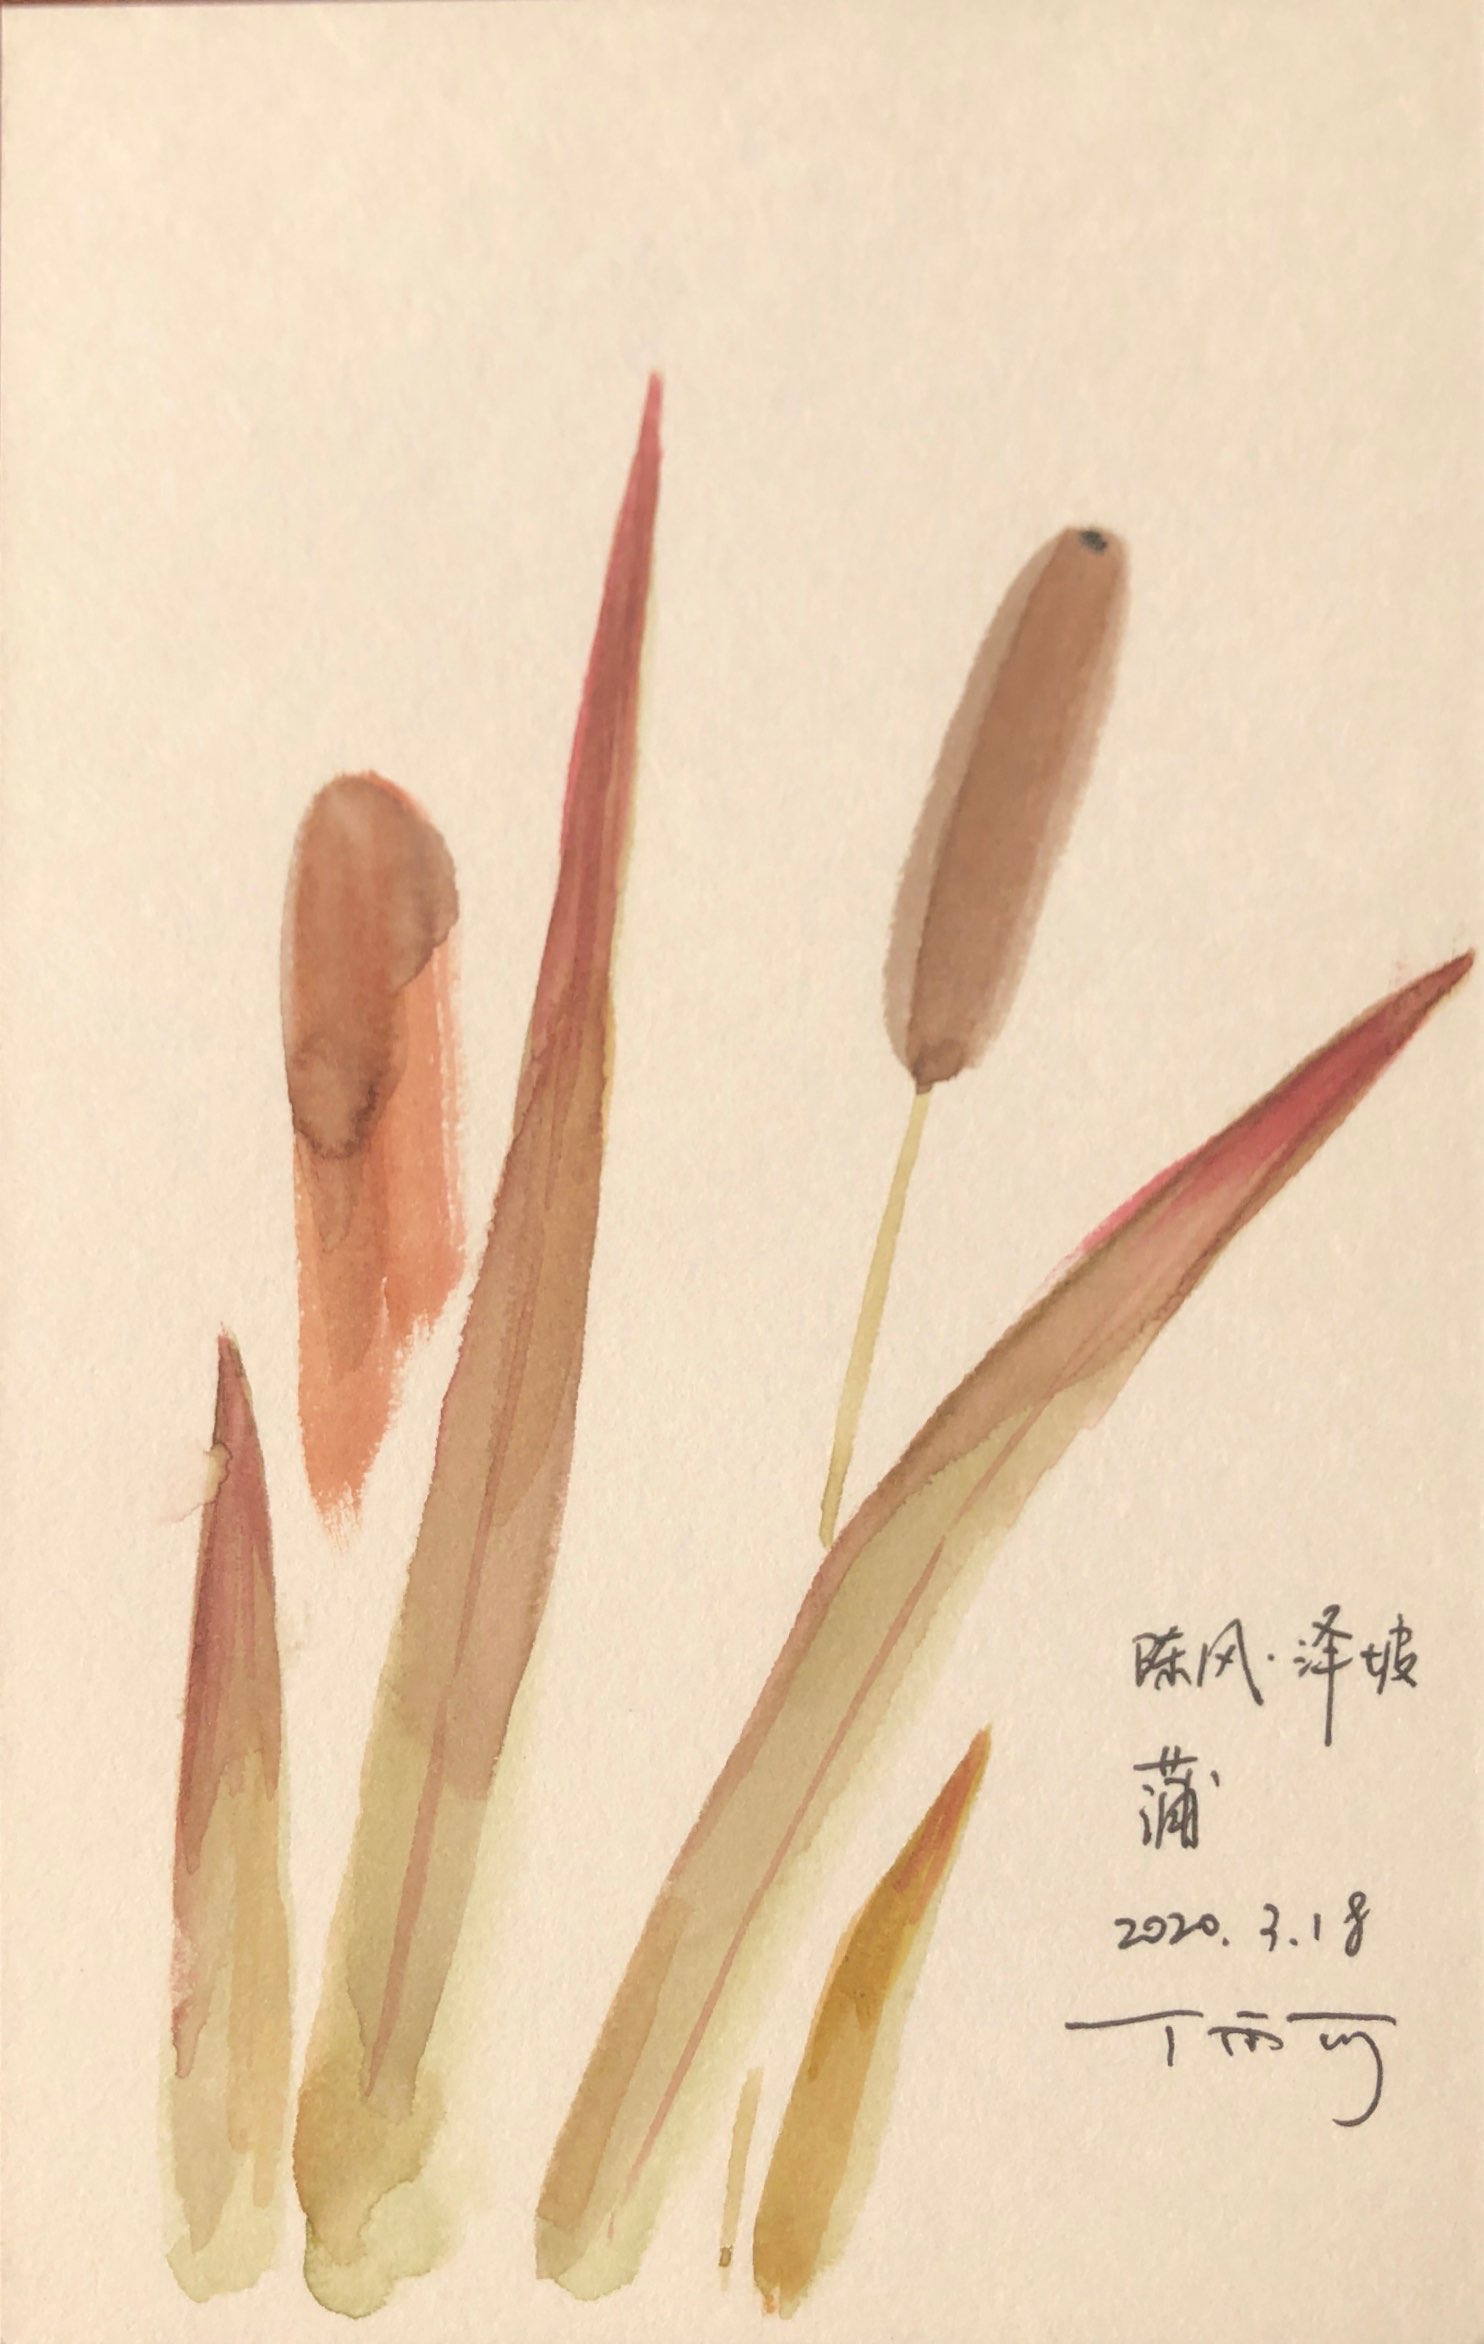 陈风·泽坡
蒲
2020.3.18
丁雨可